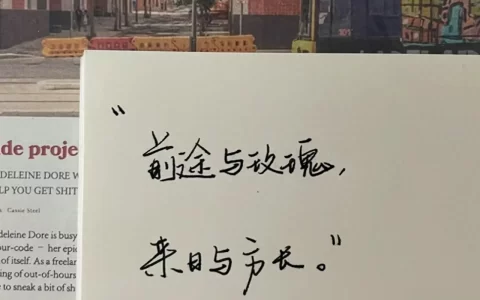 “前途与玫瑰，
来日与方长。”
de proje
DELEINE DORE W
LP YOU GET SHIT
Cassie Steel
deleine Dore is busy
our-code – her epic
of itself. As a freelan
ing of out-of-hours
e to sneak a bit of sh